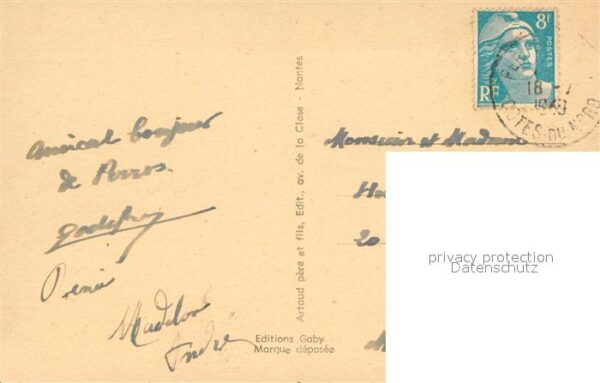 8F
POSTES
RF
18-7
1949
COTES-DU-NORD
Amical bonjour
de Perros.
Godefroy
Madelon
André
Artaud père et fils, Edit., av. de la Close - Nantes
Editions Gaby
Marque déposée
Monsieur et Madame
20
privacy protection
Datenschutz